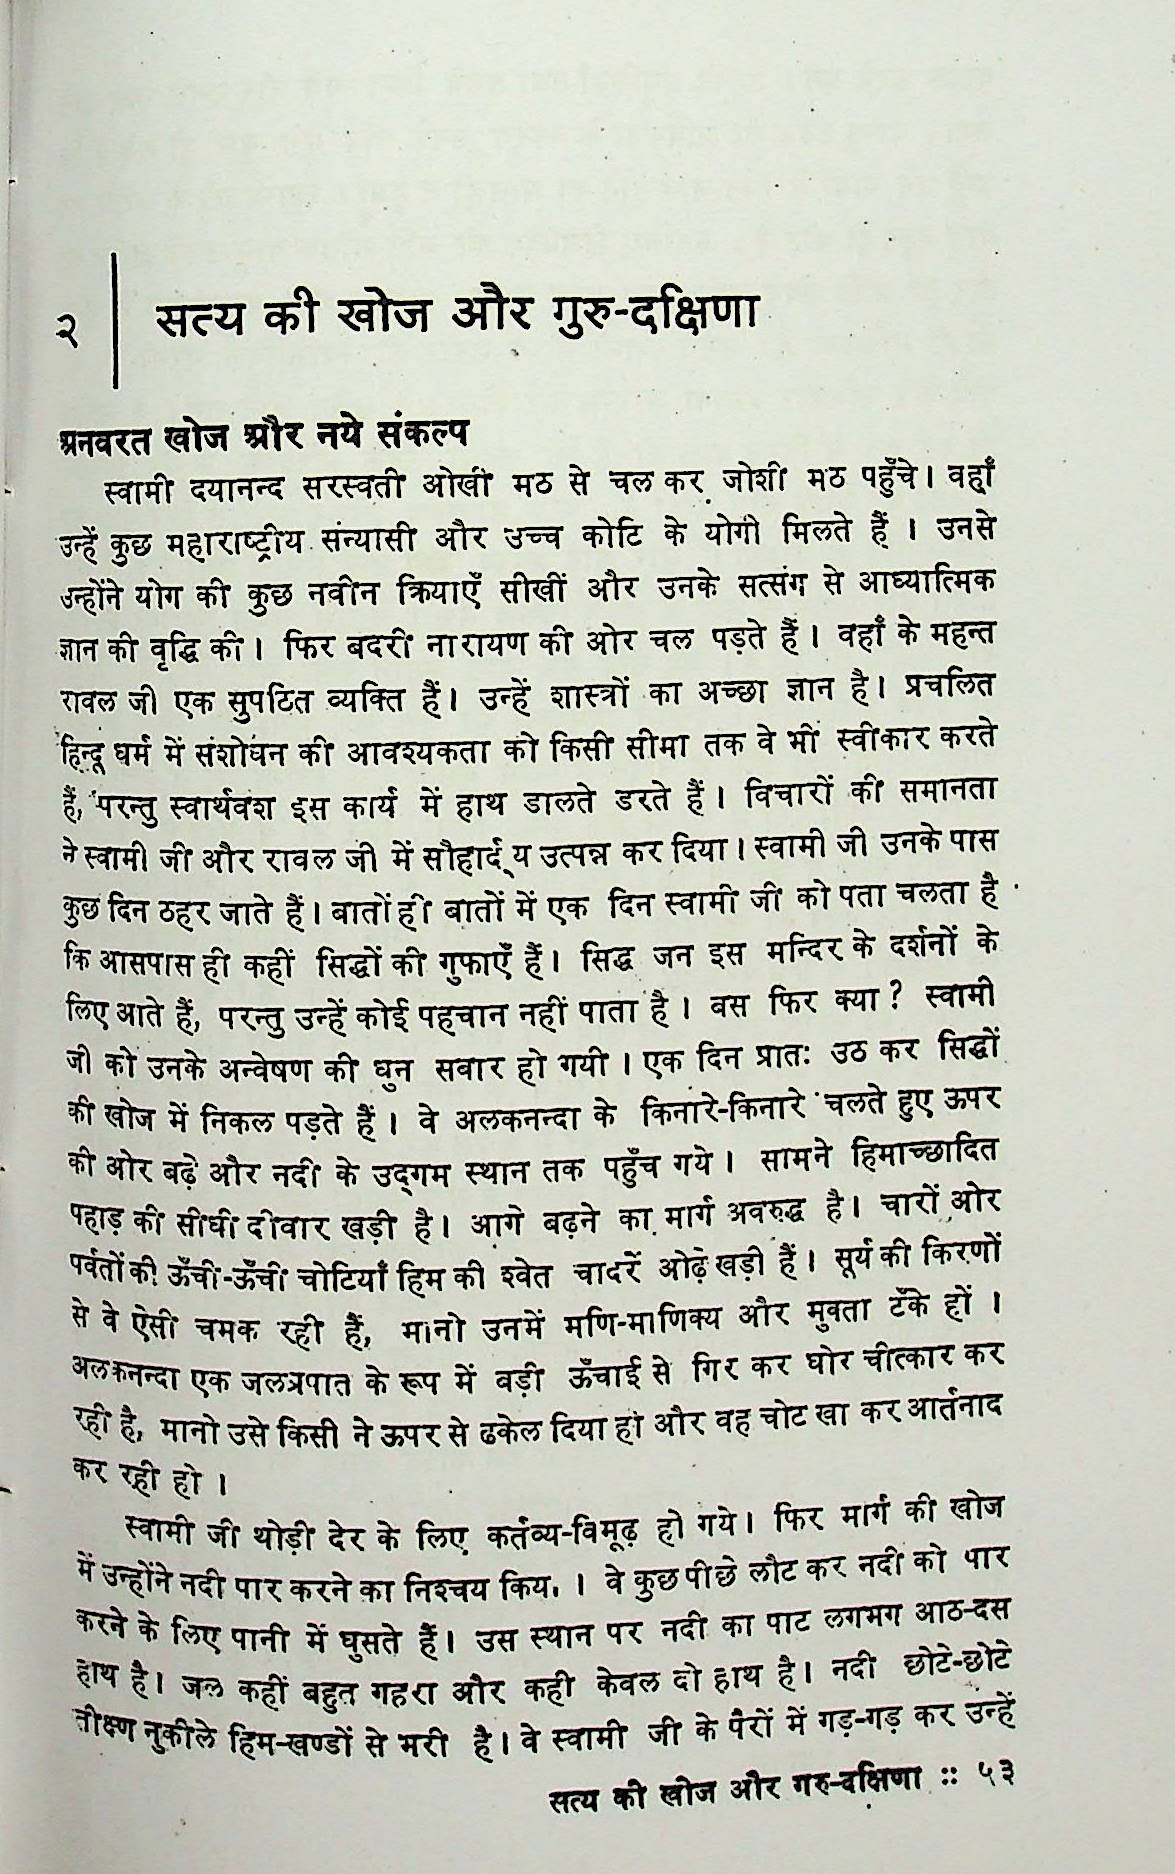 २
सत्य की खोज और गुरु-दक्षिणा
अनवरत खोज और नये संकल्प
स्वामी दयानन्द सरस्वती ओखी मठ से चल कर जोशी मठ पहुँचे। वहाँ
उन्हें कुछ महाराष्ट्रीय संन्यासी और उच्च कोटि के योगी मिलते हैं । उनसे
उन्होंने योग की कुछ नवीन क्रियाएँ सीखीं और उनके सत्संग से आध्यात्मिक
ज्ञान की वृद्धि की। फिर बदरी नारायण की ओर चल पड़ते हैं। वहाँ के महन्त
रावल जी एक सुपठित व्यक्ति हैं। उन्हें शास्त्रों का अच्छा ज्ञान है। प्रचलित
हिन्दू धर्म में संशोधन की आवश्यकता को किसी सीमा तक वे भी स्वीकार करते
हैं, परन्तु स्वार्थवश इस कार्य में हाथ डालते डरते हैं। विचारों की समानता
ने स्वामी जी और रावल जी में सौहार्द्य उत्पन्न कर दिया। स्वामी जी उनके पास
कुछ दिन ठहर जाते हैं। बातों ही बातों में एक दिन स्वामी जी को पता चलता है
कि आसपास ही कहीं सिद्धों की गुफाएँ हैं। सिद्ध जन इस मन्दिर के दर्शनों के
लिए आते हैं, परन्तु उन्हें कोई पहचान नहीं पाता है। बस फिर क्या? स्वामी
जी को उनके अन्वेषण की धुन सवार हो गयी। एक दिन प्रातः उठ कर सिद्धों
की खोज में निकल पड़ते हैं। वे अलकनन्दा के किनारे-किनारे चलते हुए ऊपर
की ओर बढ़े और नदी के उद्‌गम स्थान तक पहुँच गये। सामने हिमाच्छादित
पहाड़ की सीधी दीवार खड़ी है। आगे बढ़ने का मार्ग अवरुद्ध है। चारों ओर
पर्वतों की ऊँची-ऊँची चोटियाँ हिम की श्वेत चादरें ओढ़े खड़ी हैं। सूर्य की किरणों
से वे ऐसी चमक रही हैं, मानो उनमें मणि-माणिक्य और मुक्ता टँके हों ।
अलकनन्दा एक जलप्रपात के रूप में बड़ी ऊँचाई से गिर कर घोर चीत्कार कर
रही है, मानो उसे किसी ने ऊपर से ढकेल दिया हो और वह चोट खा कर आर्तनाद
कर रही हो ।
स्वामी जी थोड़ी देर के लिए कर्तव्य-विमूढ़ हो गये। फिर मार्ग की खोज
में उन्होंने नदी पार करने का निश्चय किया । वे कुछ पीछे लौट कर नदी को पार
करने के लिए पानी में घुसते हैं। उस स्थान पर नदी का पाट लगभग आठ-दस
हाथ है। जल कहीं बहुत गहरा और कही केवल दो हाथ है। नदी छोटे-छोटे
तीक्ष्ण नुकीले हिम-खण्डों से भरी है। वे स्वामी जी के पैरों में गड़-गड़ कर उन्हें
सत्य की खोज और गुरु-दक्षिणा :: ५३